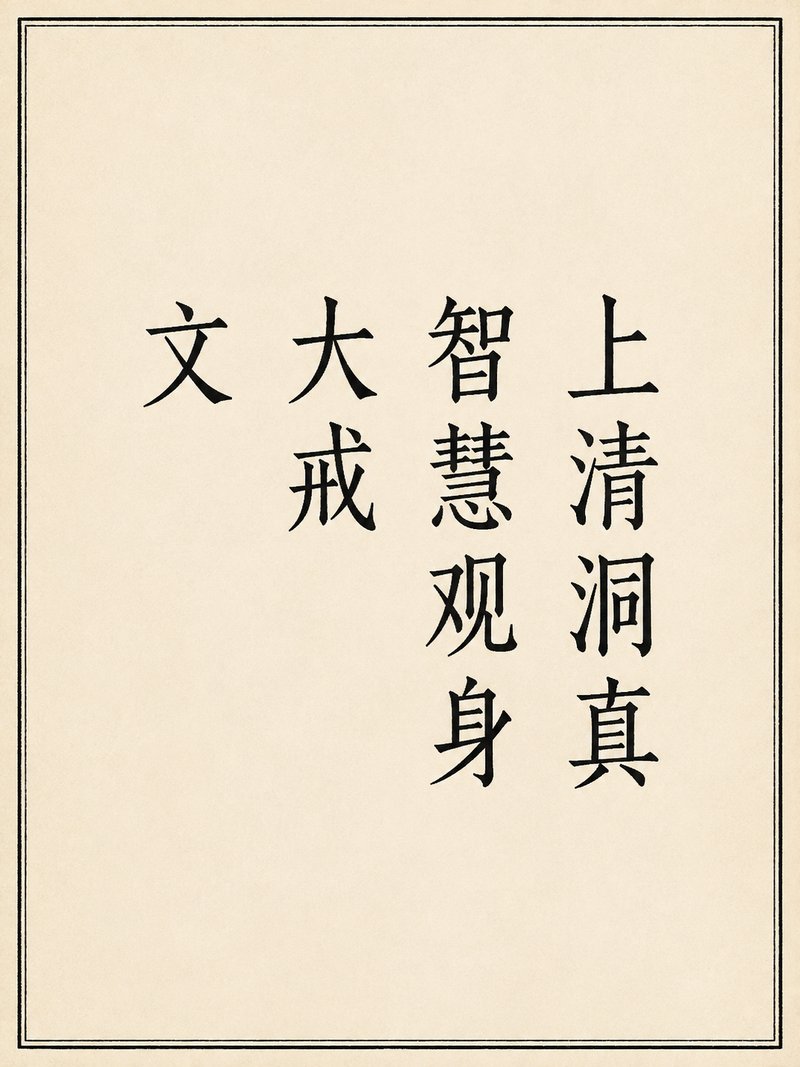 上清洞真
智慧观身
大戒
文